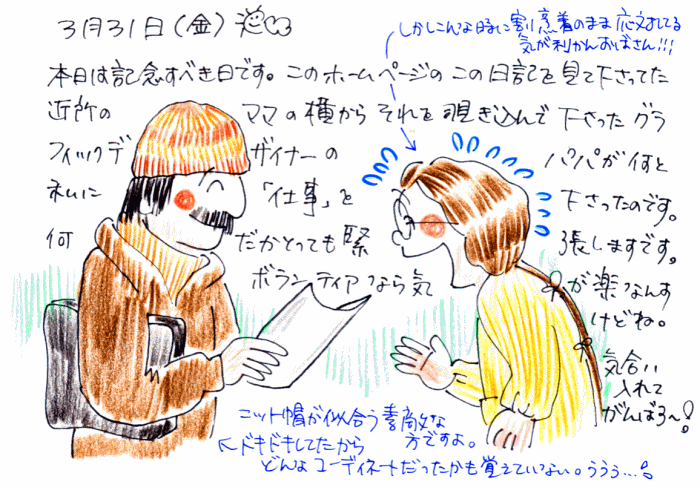 3月31日(金)
しかしこんな時に割烹着のまま応対してる
気が利かんおばさん!!!
本日は記念すべき日です。このホームページのこの日記を見て下さってた
近所の ママの横からそれを覗き込んで下さったグラ
フィックデ ザイナーの パパが何と
私に 「仕事」を 下さったのです。
何 だかとっても緊 張しますです。
ボランティアなら気 が楽なんす
けどね。
気合い
入れて
がんばる〜!
ニット帽が似合う素敵な
方ですよ。
←ドキドキしてたから
どんなコーディネートだったかも覚えていない。ううぅ…。